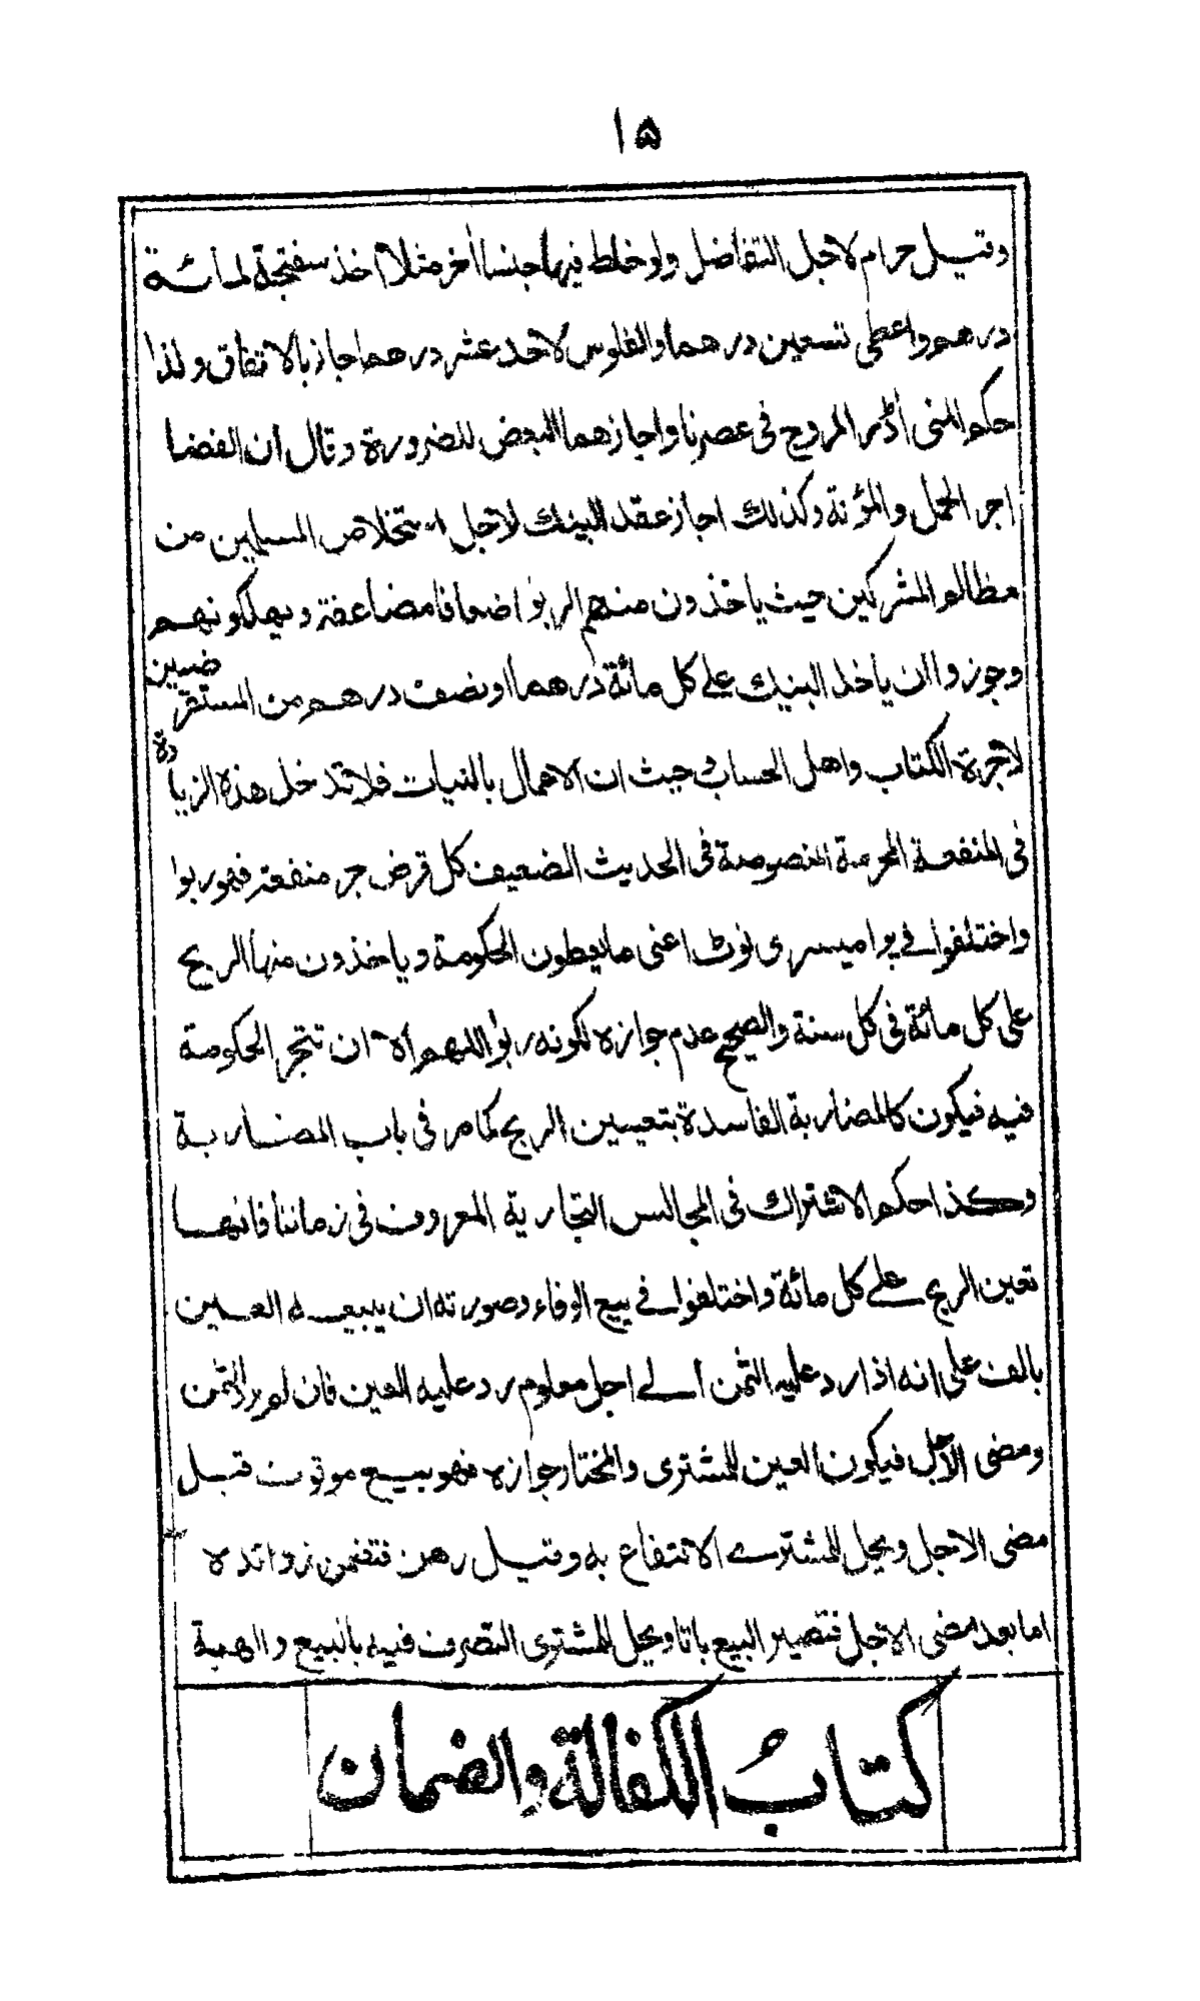 ١۵
وقيل حرام لاجل التفاضل ولو خلط فيهما جنسا أخر مثلا اخذ سفتجة لمائة
درهم واعطى تسعين درهما والفلوس لاحد عشر درهما جاز بالاتفاق ولذا
حكم المنى أڈر المروج فى عصرنا واجازهما البعض للضرورة وقال ان الفضا
اجر الحمل والمؤنة وكذلك اجاز عقد البينك لاجل استخلاص المسلمين من
مظالم المشركين حيث ياخذون منهم الربوا اضعافا مضاعفة ويهلكونهم
وجوزوا ان ياخذ البنيك على كل مائة درهما او نصف درهم من المستقرضين
لاجرة الكتاب واهل الحساب حيث ان الاعمال بالنيات فلا تدخل هذه الزيادة
فى المنفعة المحرمة المنصوصة فى الحديث الضعيف كل قرض جر منفعة فهو ربوا
واختلفوا فے پرا ميسرى نوٹ اعنى ما يعطون الحكومة وياخذون منها الربح
على كل مائة فى كل سنة والصحيح عدم جوازه لكونه ربوا اللهم الا ان تتجر الحكومة
فيه فيكون كالمضاربة الفاسدة بتعيين الربح كما مر فى باب المضاربة
وكذا حكم الاشتراك فى المجالس التجارية المعروف فى زماننا فانها
تعين الربح علے كل مائة واختلفوا فے بيع الوفاء وصورته ان يبيعه العين
بالف على انه اذا رد عليه الثمن الے اجل معلوم رد عليه العين فان لم يرد الثمن
ومضى الاجل فيكون العين للمشترى والمختار جوازه فهو بيع موقوت قبل
مضى الاجل ويحل للمشترے الانتفاع به وقيل رهن فتضمن زوائده
اما بعد مضى الاجل فتصير البيع باتا ويحل للمشترى التصرف فيه بالبيع والهبة
كتاب الكفالة والضمان